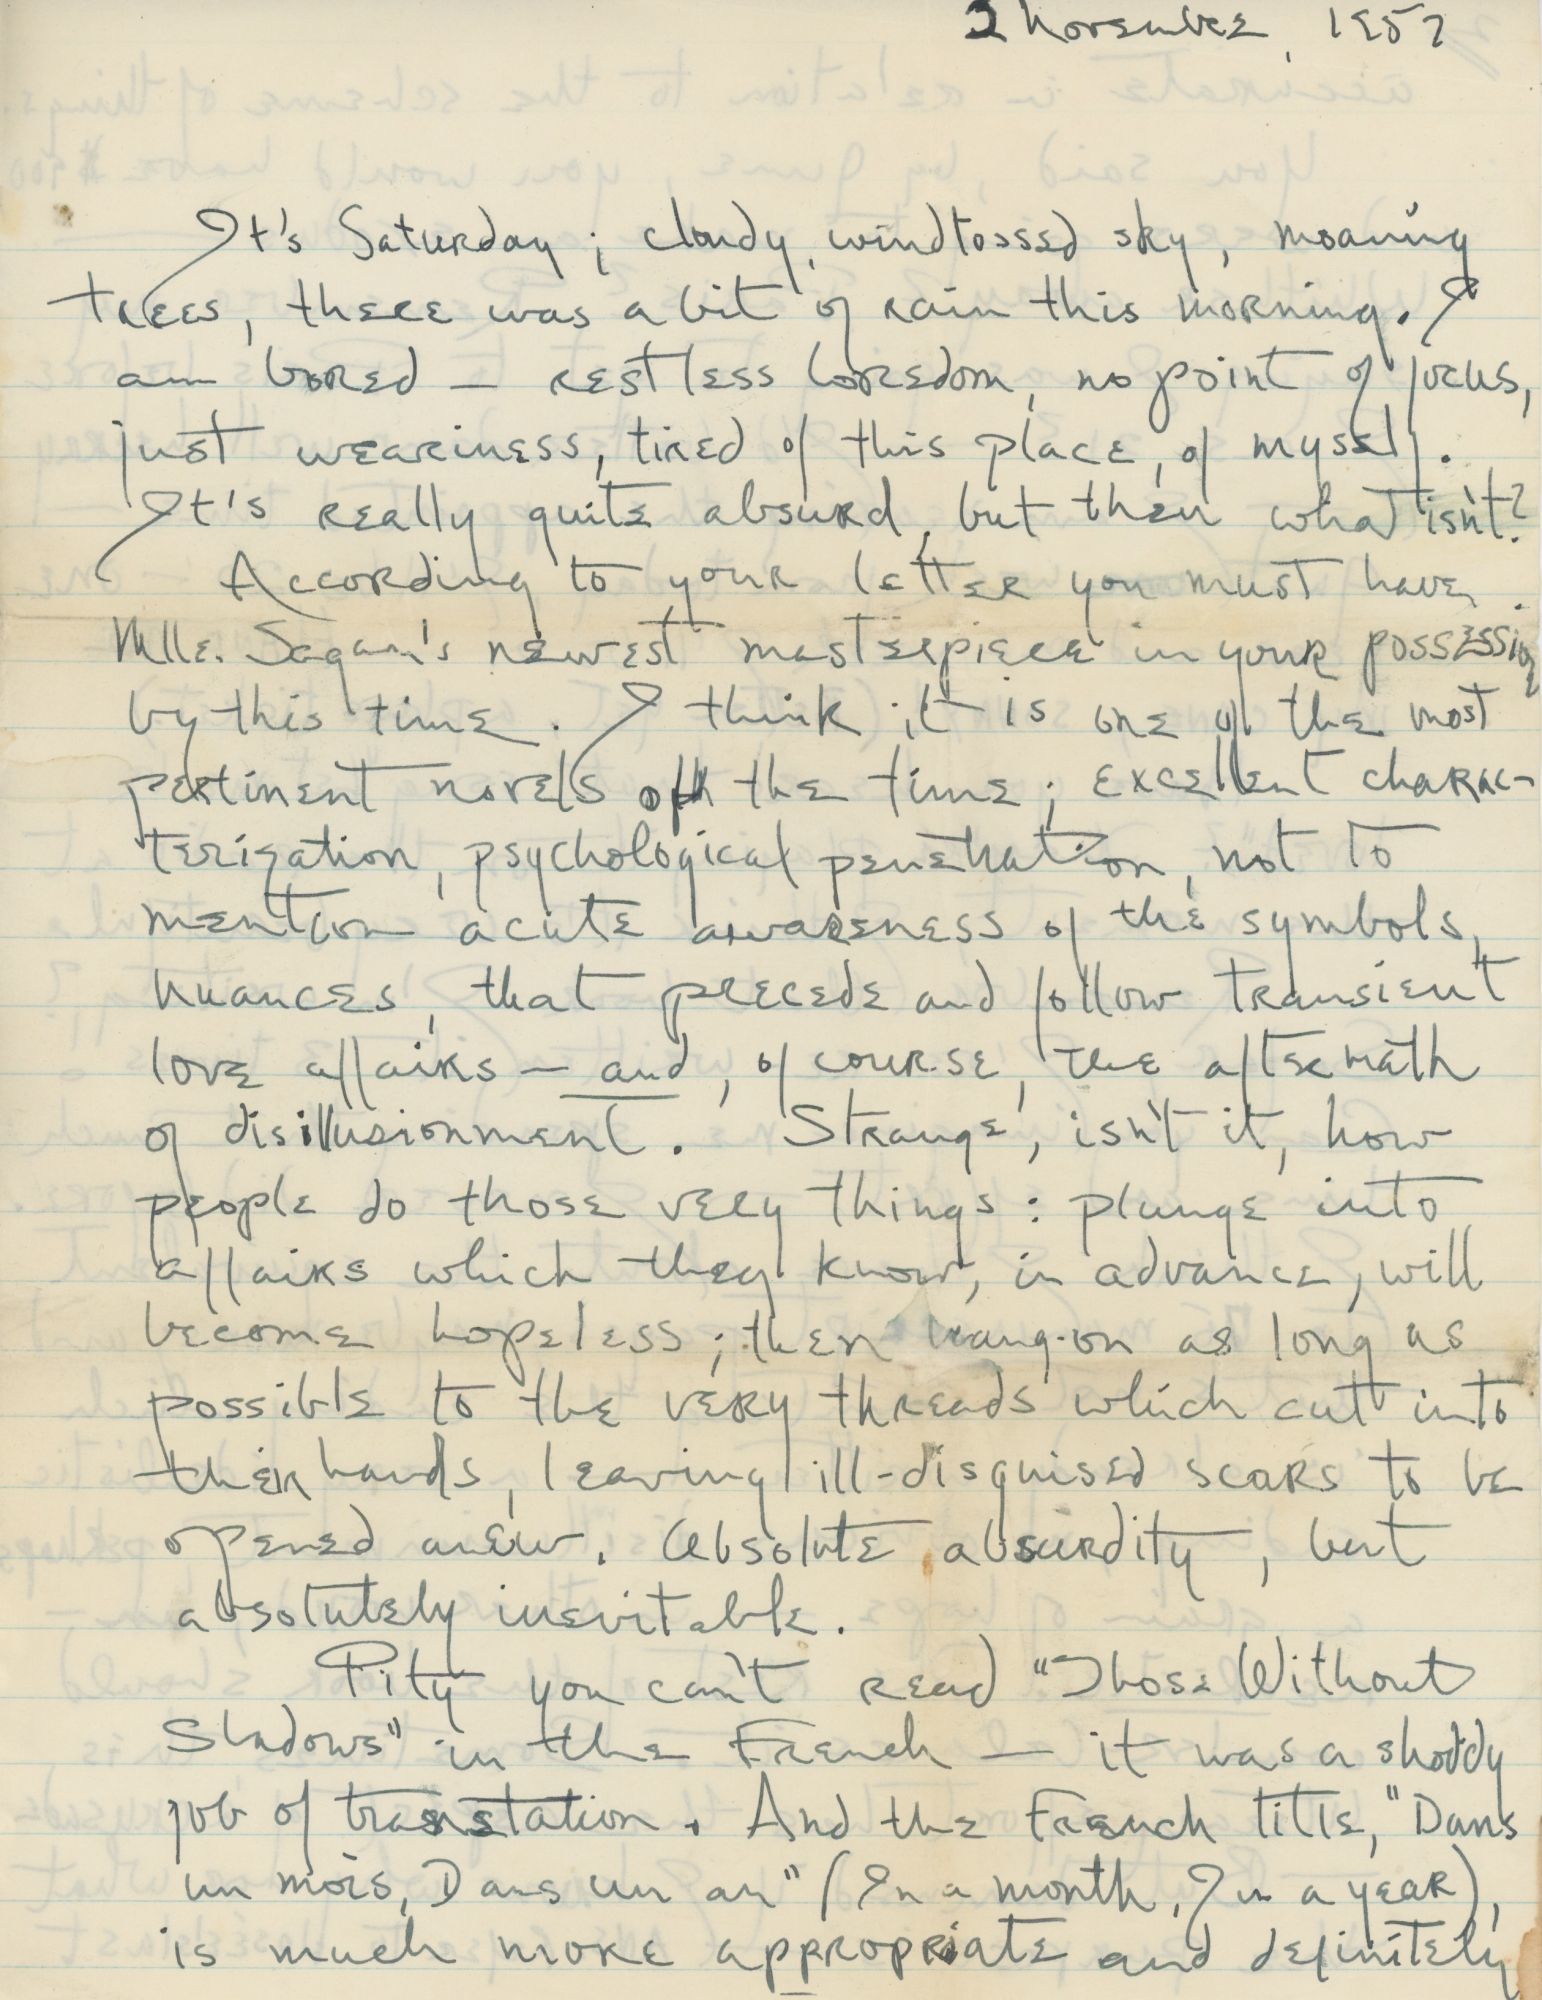 2 November, 1957
It's Saturday; cloudy, windtossed sky, moaning
trees, there was a bit of rain this morning. I
am bored — restless boredom, no point of focus,
just weariness, tired of this place, of myself.
It's really quite absurd, but then what isn't?
According to your letter you must have
Mlle. Sagan's newest masterpiece in your possession
by this time. I think it is one of the most
pertinent novels of the time; excellent charac-
terization, psychological penetration, not to
mention acute awareness of the symbols,
nuances, that precede and follow transient
love affairs — and, of course, the aftermath
of disillusionment. Strange, isn't it, how
people do those very things: plunge into
affairs which they know, in advance, will
become hopeless; then hang-on as long as
possible to the very threads which cut into
their hands, leaving ill-disguised scars to be
opened anew. Absolute absurdity, but
absolutely inevitable.
Pity you can't read "Those Without
Shadows" in the French — it was a shoddy
job of translation. And the French title, "Dans
un mois, Dans un an" (In a month, In a year),
is much more appropriate and definitely